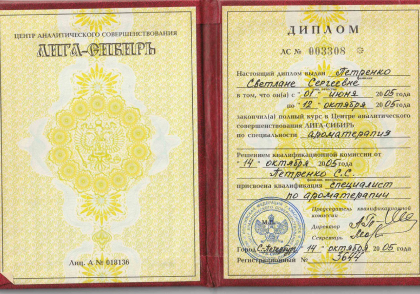 ЦЕНТР АНАЛИТИЧЕСКОГО СОВЕРШЕНСТВОВАНИЯ
ЛИГА-СИБИРЬ
Лиц. А № 018136
ДИПЛОМ
АС № 003308
Настоящий диплом выдан Петренко
Светлане Сергеевне
в том, что он(а) с "01" июня 2005
по "12" октября 2005
закончил(а) полный курс в Центре аналитического
совершенствования ЛИГА-СИБИРЬ
по специальности ароматерапия
Решением квалификационной комиссии от
"14" октября 2005
Петренко С.С.
присвоена квалификация специалист
по ароматерапии
М.П.
Председатель квалификационной
комиссии
Директор
Секретарь
Город С-Петербург 14 октября 2005
Регистрационный № 3644